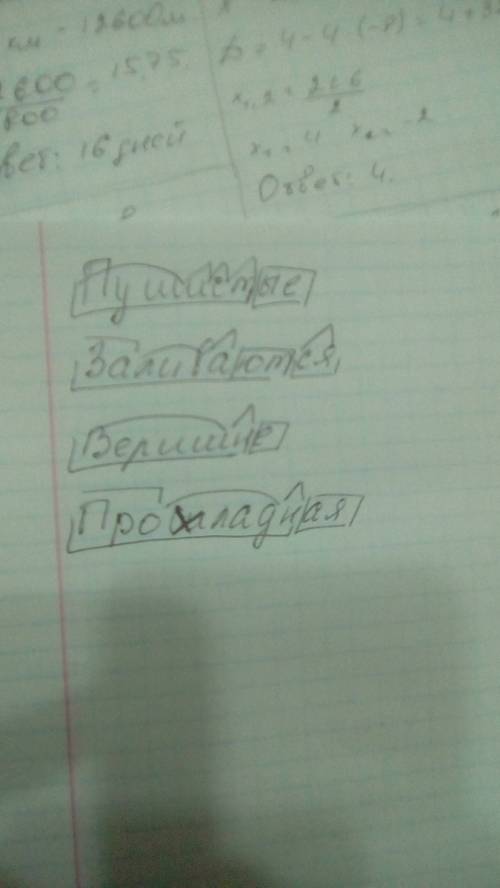 км - 12600м
2600/800 = 15,75.
вет: 16 дней
D = 4 - 4 (-8) = 4 + 3
x₁,₂ = 2±6/2
x₁ = 4 x₂ = -2
Ответ: 4.
Пушистые
Заливаются
Вершине
Прохладная